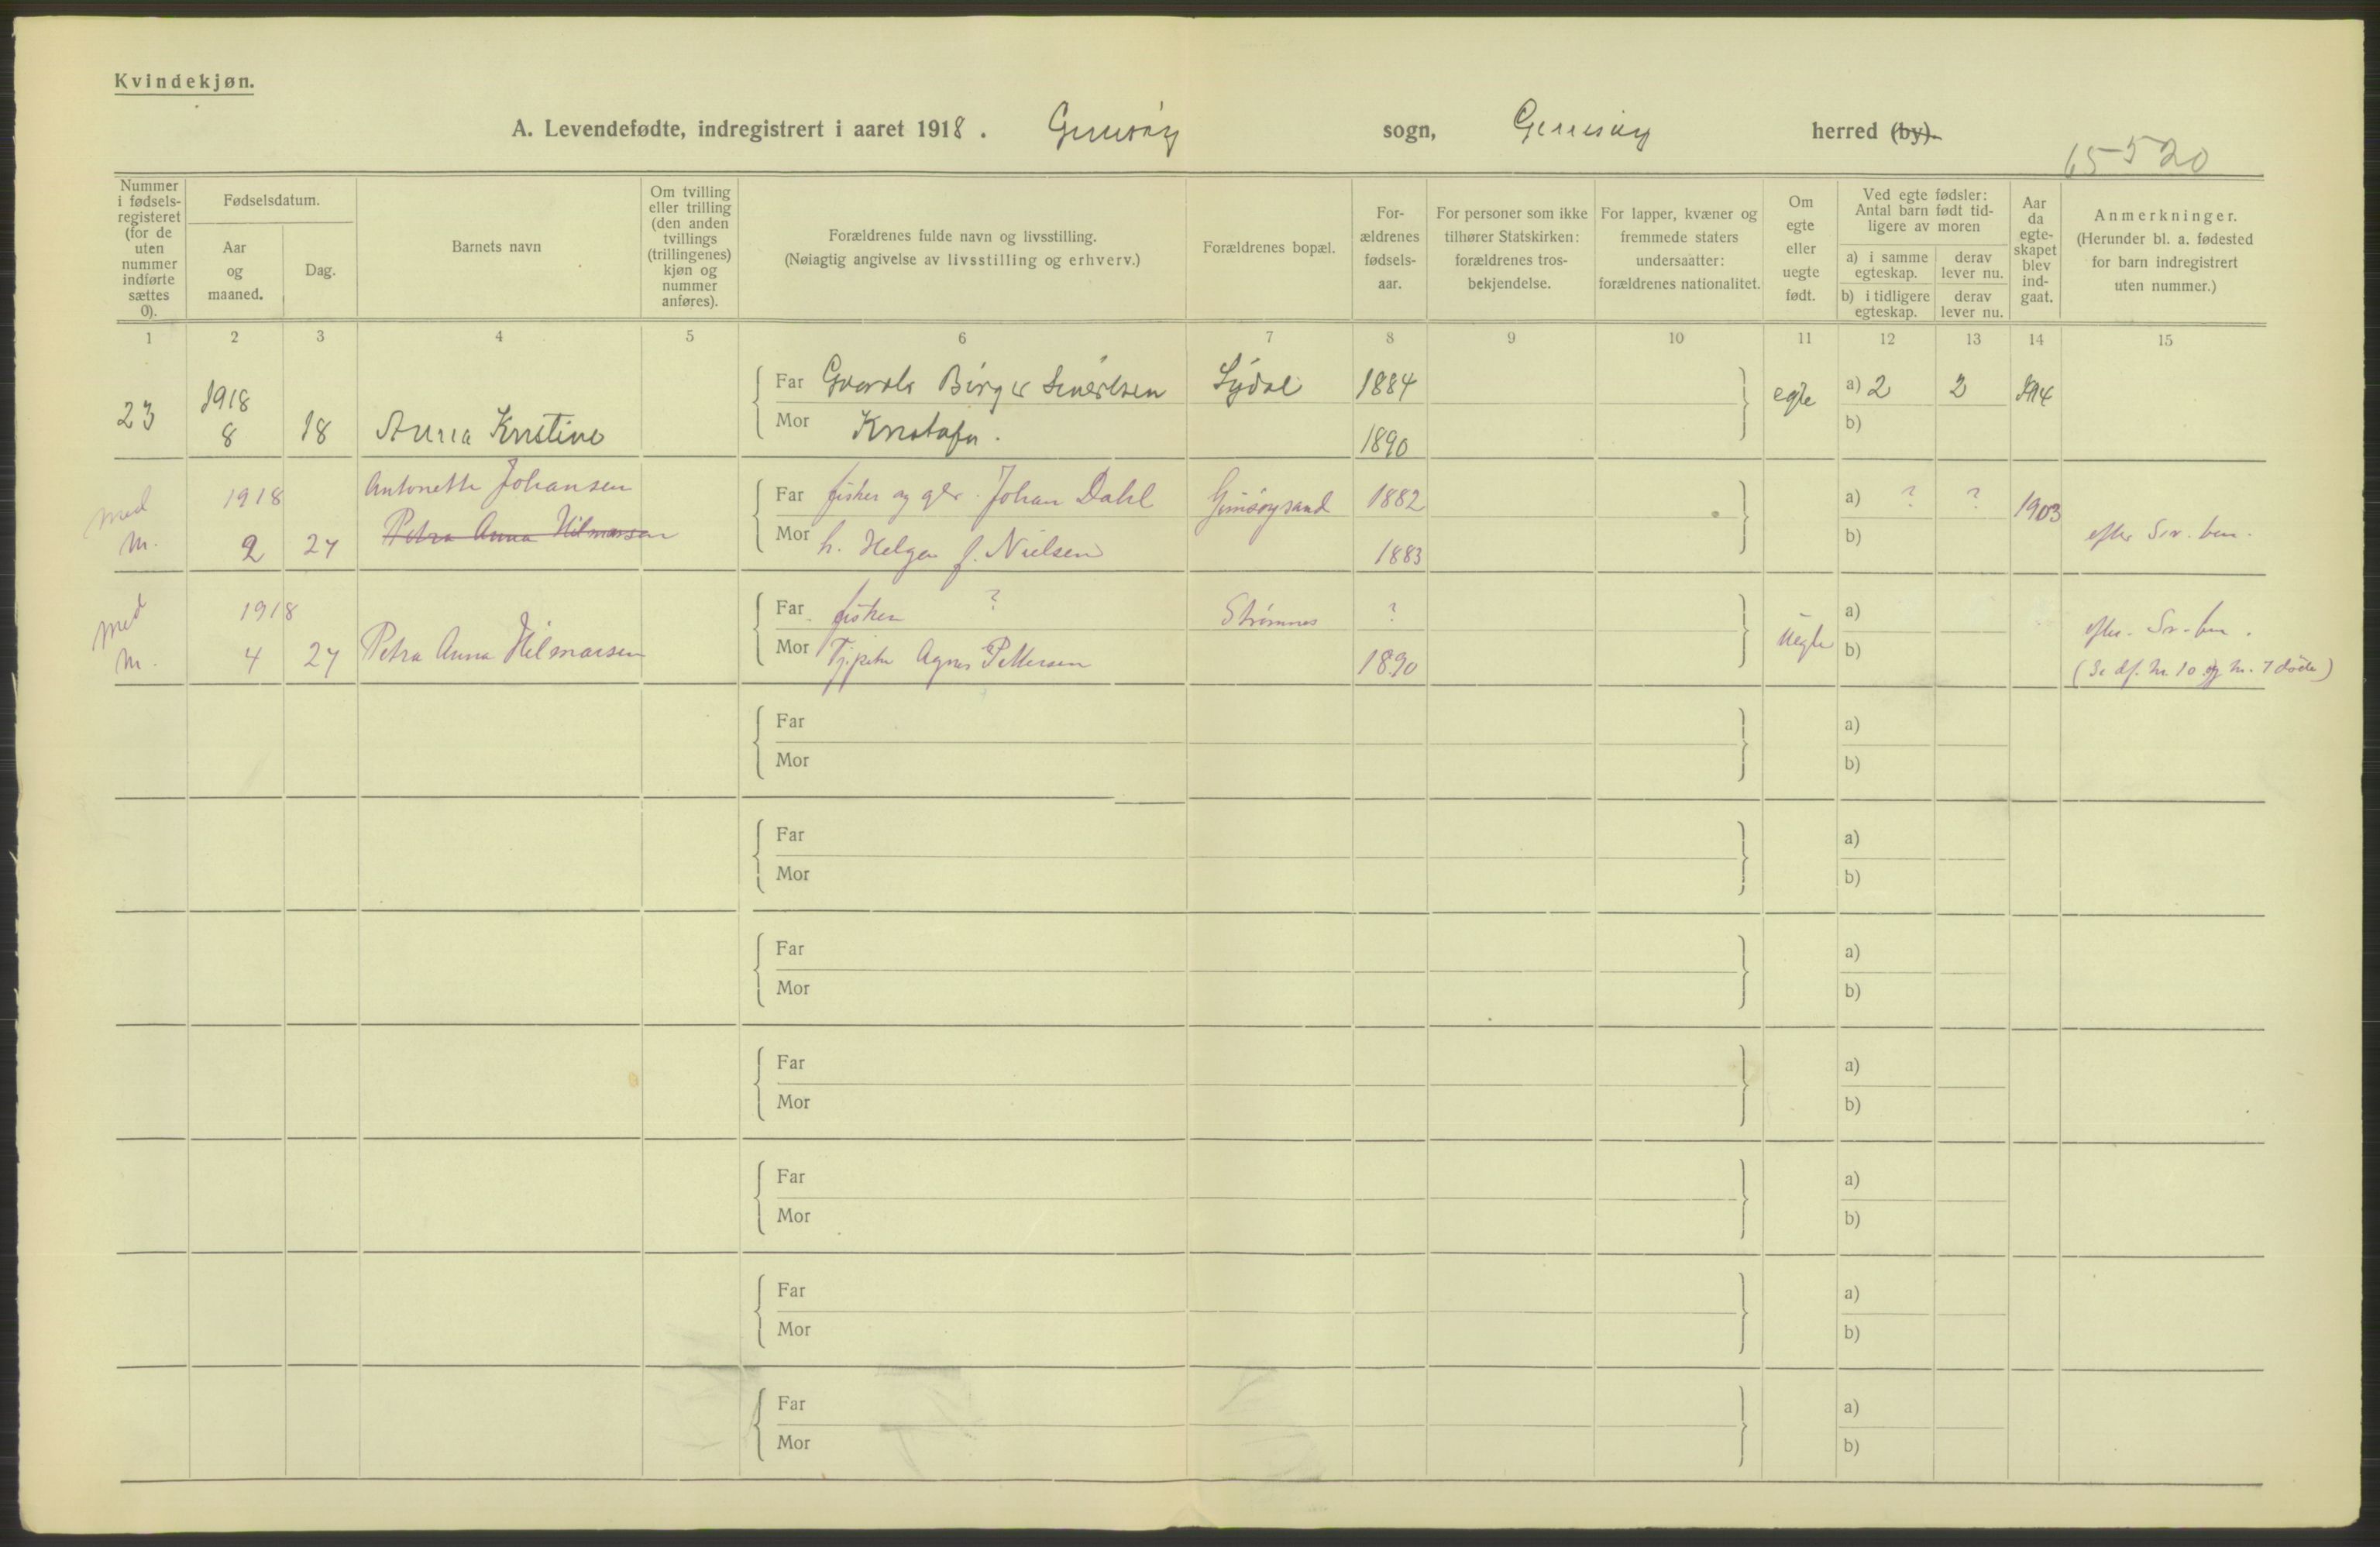 Kvindekjøn.
A. Levendefødte, indregistrert i aaret 1918. Gimsøy sogn, Gimsøy herred (by).
65520
Nummer i fødsels-registeret (for de uten nummer indførte sættes 0).
Fødselsdatum.
Aar og maaned.
Dag.
Barnets navn
Om tvilling eller trilling (den anden tvillings (trillingenes) kjøn og nummer anføres).
Forældrenes fulde navn og livsstilling.
(Nøiagtig angivelse av livsstilling og erhverv.)
Forældrenes bopæl.
For-ældrenes fødsels-aar.
For personer som ikke tilhører Statskirken: forældrenes tros-bekjendelse.
For lapper, kvæner og fremmede staters undersaatter: forældrenes nationalitet.
Om egte eller uegte født.
Ved egte fødsler: Antal barn født tid-ligere av moren
a) i samme egteskap.
derav lever nu.
b) i tidligere egteskap.
derav lever nu.
Aar da egte-skapet blev ind-gaat.
Anmerkninger.
(Herunder bl. a. fødested for barn indregistrert uten nummer.)
1 2 3 4 5 6 7 8 9 10 11 12 13 14 15
Far Birger Sydal 1884 egte a) 2 2 1914
23 1918 8 18 Anna Kristine
Mor 1890 b)
med m. 1918 2 27 Antonette Johansen
Petra Anna Hilmarsen
Far fisker og gbr. Johan Dahl Gimsøysand 1882 a) ? ? 1903
Mor h. Helga f. Nielsen 1883 b)
efter
med m. 1918 4 27 Petra Anna Hilmarsen
Far fisker ? Strømnes ? Uegte a)
Mor Agnes Pettersen 1890 b)
(Se df. nr. 10 og nr. 7 døde)
Far a)
Mor b)
Far a)
Mor b)
Far a)
Mor b)
Far a)
Mor b)
Far a)
Mor b)
Far a)
Mor b)
Far a)
Mor b)